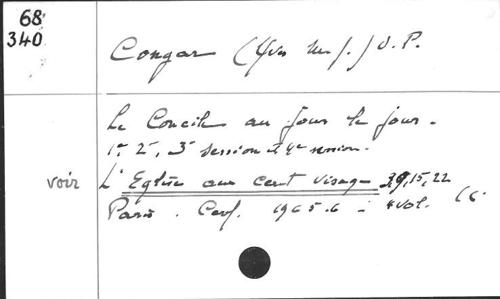 68
340
Congar (Yves M. J.) O.P.
Le Concile au jour le jour.
1e, 2e, 3e session et 4e session.
voir L'Eglise aux cent visages 3,9,15,22
Paris. Cerf. 1965-6 - 4 vol.